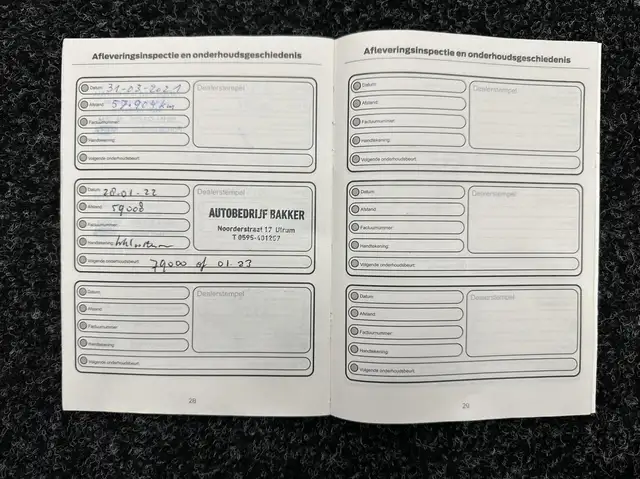 Afleveringsinspectie en onderhoudsgeschiedenis
Datum: 31-03-2021
Afstand: 57.904 km
Factuurnummer:
Handtekening:
Volgende onderhoudsbeurt:
Dealerstempel
Datum: 28.01-22
Afstand: 59008
Factuurnummer:
Handtekening:
Volgende onderhoudsbeurt: 79000 of 01.23
Dealerstempel
AUTOBEDRIJF BAKKER
Noorderstraat 17 Ulrum
T 0595-401257
Datum:
Afstand:
Factuurnummer:
Handtekening:
Volgende onderhoudsbeurt:
Dealerstempel
28
Afleveringsinspectie en onderhoudsgeschiedenis
Datum:
Afstand:
Factuurnummer:
Handtekening:
Volgende onderhoudsbeurt:
Dealerstempel
Datum:
Afstand:
Factuurnummer:
Handtekening:
Volgende onderhoudsbeurt:
Dealerstempel
Datum:
Afstand:
Factuurnummer:
Handtekening:
Volgende onderhoudsbeurt:
Dealerstempel
29